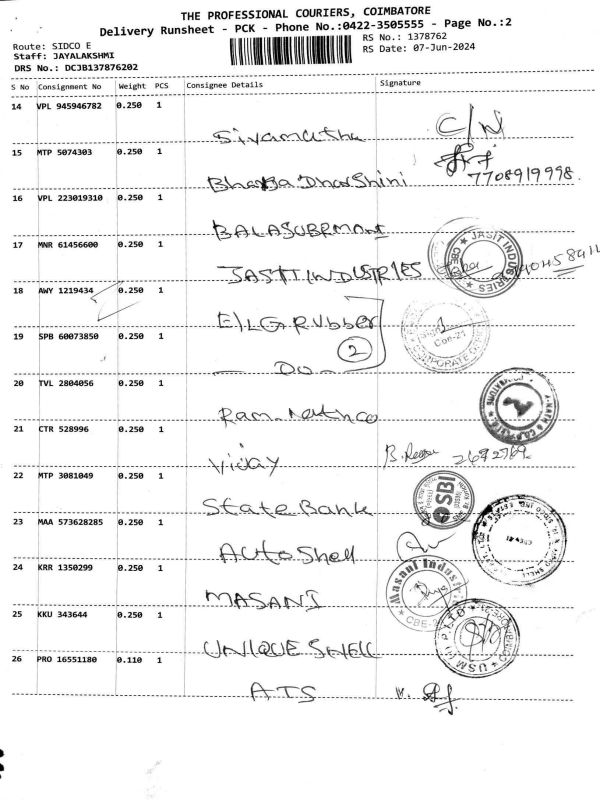 THE PROFESSIONAL COURIERS, COIMBATORE
Delivery Runsheet - PCK - Phone No.:0422-3505555 - Page No.:2
Route: SIDCO E
RS No.: 1378762
Staff: JAYALAKSHMI
RS Date: 07-Jun-2024
DRS No.: DCJB137876202
S No Consignment No Weight PCS Consignee Details Signature
14 VPL 945946782 0.250 1
Sivamatha C/N
15 MTP 5074303 0.250 1
Bharga Dharshini 7708919998.
16 VPL 223019310 0.250 1
BALASUBRMANI
17 MNR 61456600 0.250 1
JASIT INDUSTRIES
JASIT INDUSTRIES
18 AWY 1219434 0.250 1
ELLG Rubber
19 SPB 60073850 0.250 1
2
Do
20 TVL 2804056 0.250 1
Ram
21 CTR 528996 0.250 1
Vijay
22 MTP 3081049 0.250 1
SBI
State Bank
23 MAA 573628285 0.250 1
Auto Shell
24 KRR 1350299 0.250 1
Masani Indust
MASANI
25 KKU 343644 0.250 1
UNIQUE SHELL
26 PRO 16551180 0.110 1
ATS